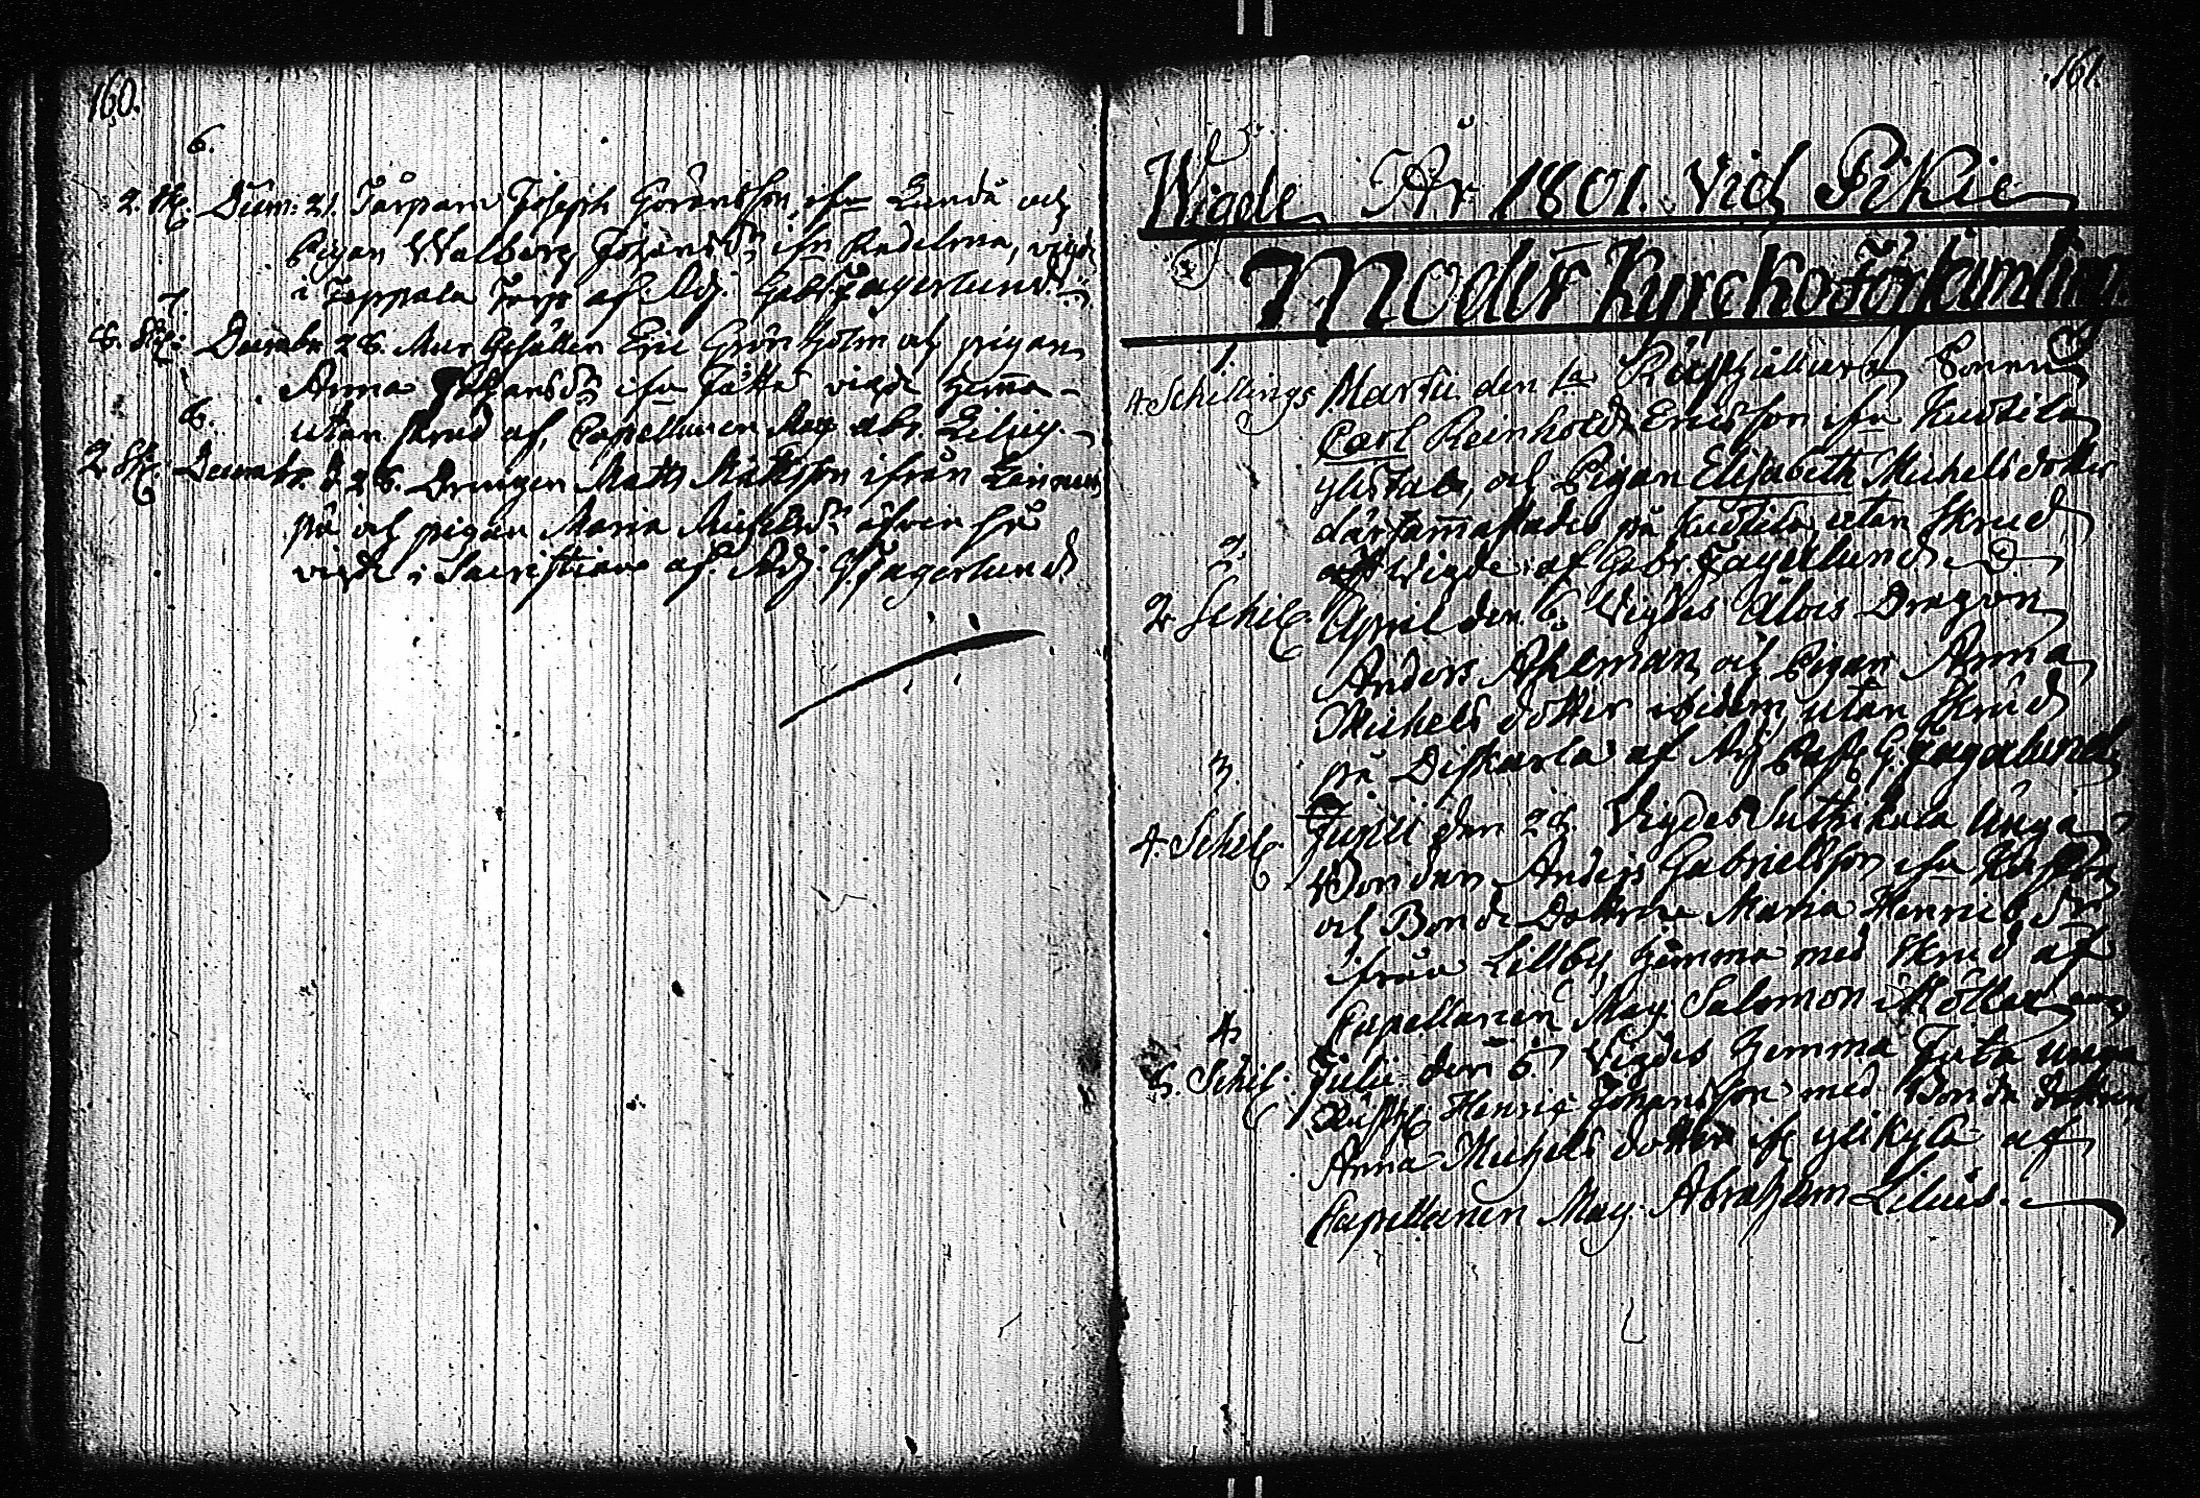 160.
6.
2. sk. Decm: 21. Torparn Joseph Göransson ifrn Lundo och
Pigan Walborg Johansdr ifrn Radelma, vigde
i Torp af Adj. Gabr. Fagerlund.
7.
8. Sk: Decembr 28. Mur Gesällen Eric Grönholm och pigan
Anna ifrn vigde hemma
utan skrud af Capellanen Mag Abr. Lilius.
8.
2 Sk. Decembr. d 28. Drengen Matts Mattsson ifrån
på och pigan Maria Michelsdr äfven ifrå
vigde i Sacristian af Adj. G. Fagerlund
161.
Wigde År 1801. vid Pikie
Moder Kyrcko Församling
1.
4 Schillings Martii den 1a Rusthållare Sonen
Carl Reinhold Ericsson ifrn Kustila
ylistalo, och Pigan Elisabeth Michelsdotter
därsammastädes på Kustila utan Skrud
Wigde af Gabr. Fagerlund
2.
2. Schil. April den 6. Wigdes Dragon
Anders Ahlman och Pigan Anna
Michels dotter ibidem utan Skrud
på Diskarla af Adj G. Fagerlund
3.
4. Schil. Junii den 28. Wigdes unga
Bonden Anders Gabrielsson ifrn
och Bonde Dottren Maria Henrics dr
ifrån Lillby hemma med skrud af
Capellanen Mag Salomon Möller
4.
5. Schil. Julii den 5 Wigdes hemma unga
Rusth. Henric Johansson med Bonde dottren
Anna Michels dotter ifr ylikylä af
Capellanen Mag. Abraham Lilius.